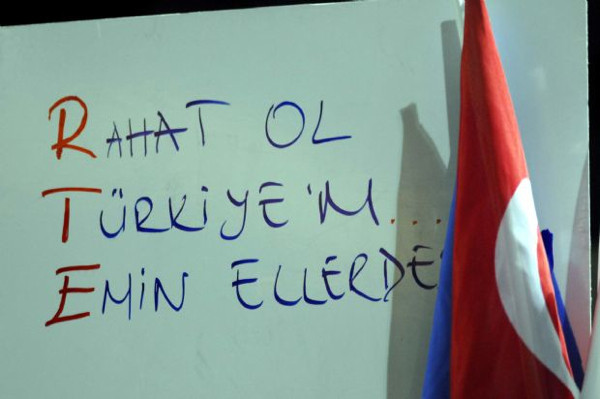 RAHAT OL
TÜRKİYE'M....
EMİN ELLERDE